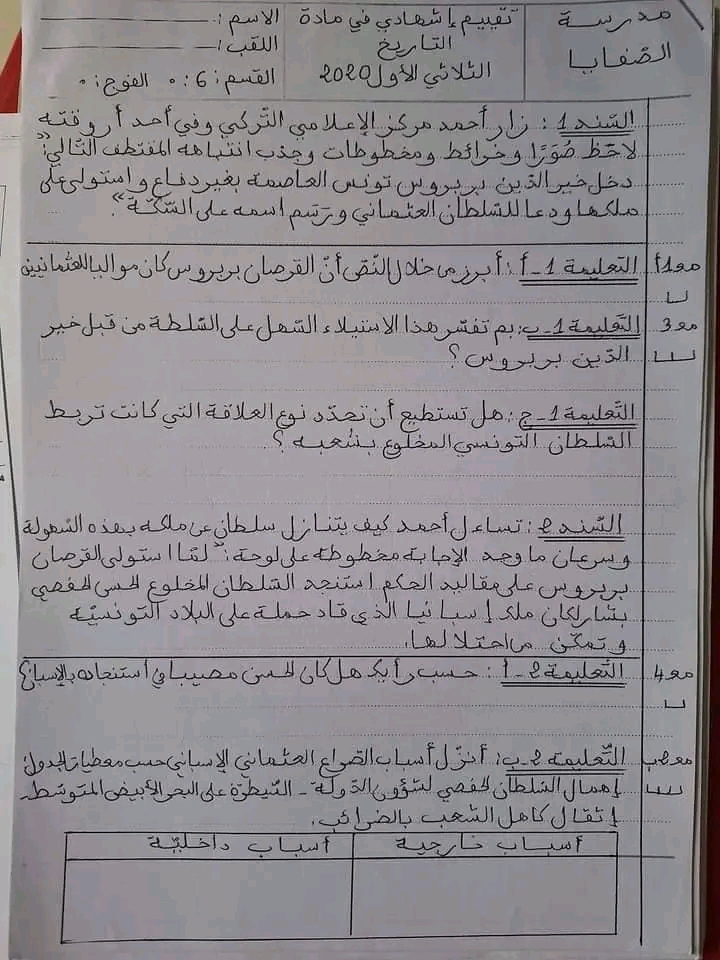 مدرسة
الصّفايا
تقييم إشهادي في مادة
التاريخ
الثلاثي الأول 2020
الاسم :
اللقب :
القسم : 6 . الفوج :
السّند 1 : زار أحمد مركز الإعلامي التّركي وفي أحد أروقته
لاحظ صُوَرًا وخرائط ومخطوطات وجذب انتباهه المقتطف التالي: "
دخل خير الدّين بربروس تونس العاصمة بغير دفاع واستولى على
ملكها ودعا للسّلطان العثماني ورَسَم اسمه على السّكّة".
مع1أ
التّعليمة 1-أ : أبرز من خلال النّصّ أنّ القرصان بربروس كان مواليا للعثمانيين
مع3
التّعليمة 1-ب: بم تفسّر هذا الاستيلاء السّهل على السّلطة من قبل خير
الدّين بربروس ؟
التّعليمة 1-ج : هل تستطيع أن تحدّد نوع العلاقة التي كانت تربط
السّلطان التونسي المخلوع بشعبه ؟
السّند 2 : تساءل أحمد كيف يتنازل سلطان عن ملكه بهذه السّهولة
وسرعان ما وجد الإجابة مخطوطة على لوحة : "لمّا استولى القرصان
بربروس على مقاليد الحكم استنجد السّلطان المخلوع الحسن الحفصي
بشارلكان ملك إسبانيا الذي قاد حملة على البلاد التونسيّة
وتمكّن من احتلالها.
مع4
التّعليمة 2-أ : حسب رأيك هل كان الحسن مصيبا في استنجاده بالإسبان؟
مع2ب
التّعليمة 2-ب : أنزّل أسباب الصّراع العثماني الإسباني حسب معطيات الجدول:
إهمال السّلطان الحفصي لشؤون الدّولة - السّيطرة على البحر الأبيض المتوسّط -
إثقال كاهل الشعب بالضّرائب.
أسباب خارجية
أسباب داخليّة